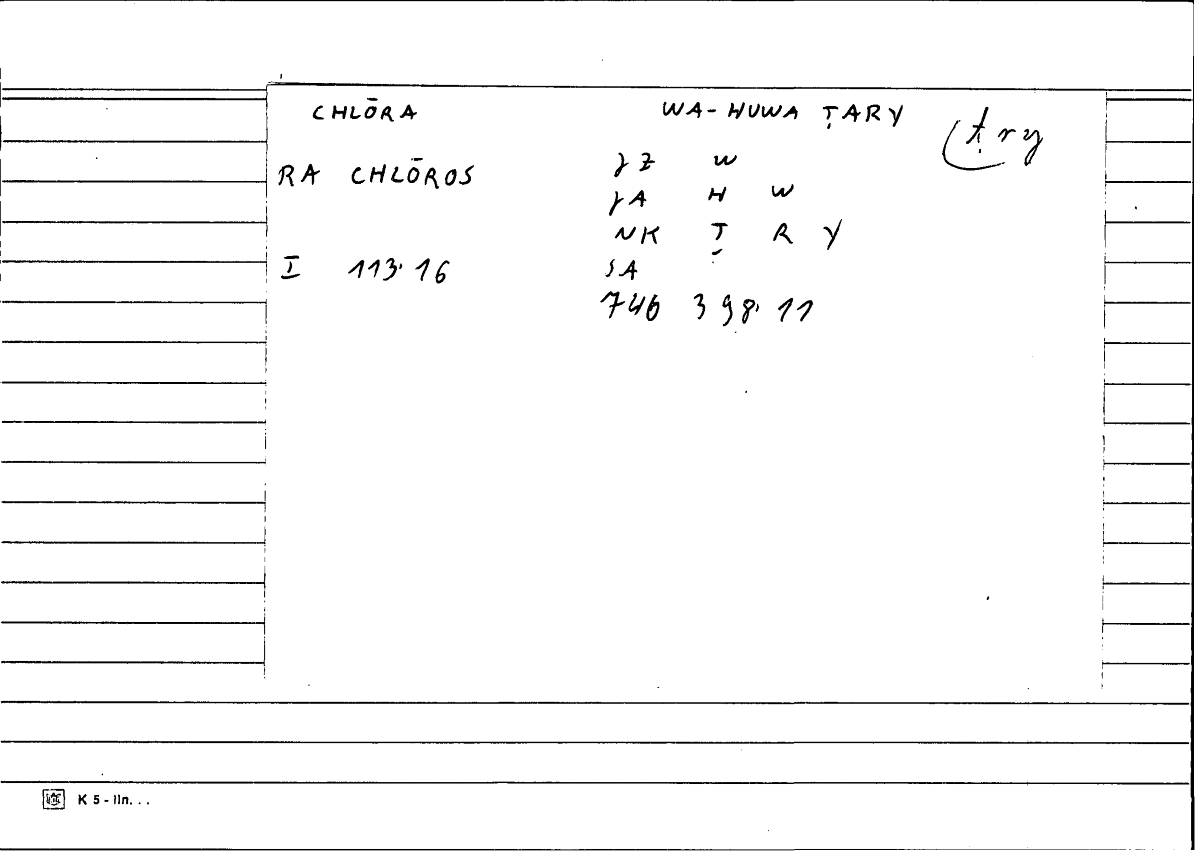 CHLŌRA WA-HUWA ṬARY ṭry
JZ W
RA CHLŌROS
JA H W
NK Ṭ R Y
I 113,16 SA
746 398,11
K 5 - lln. . .